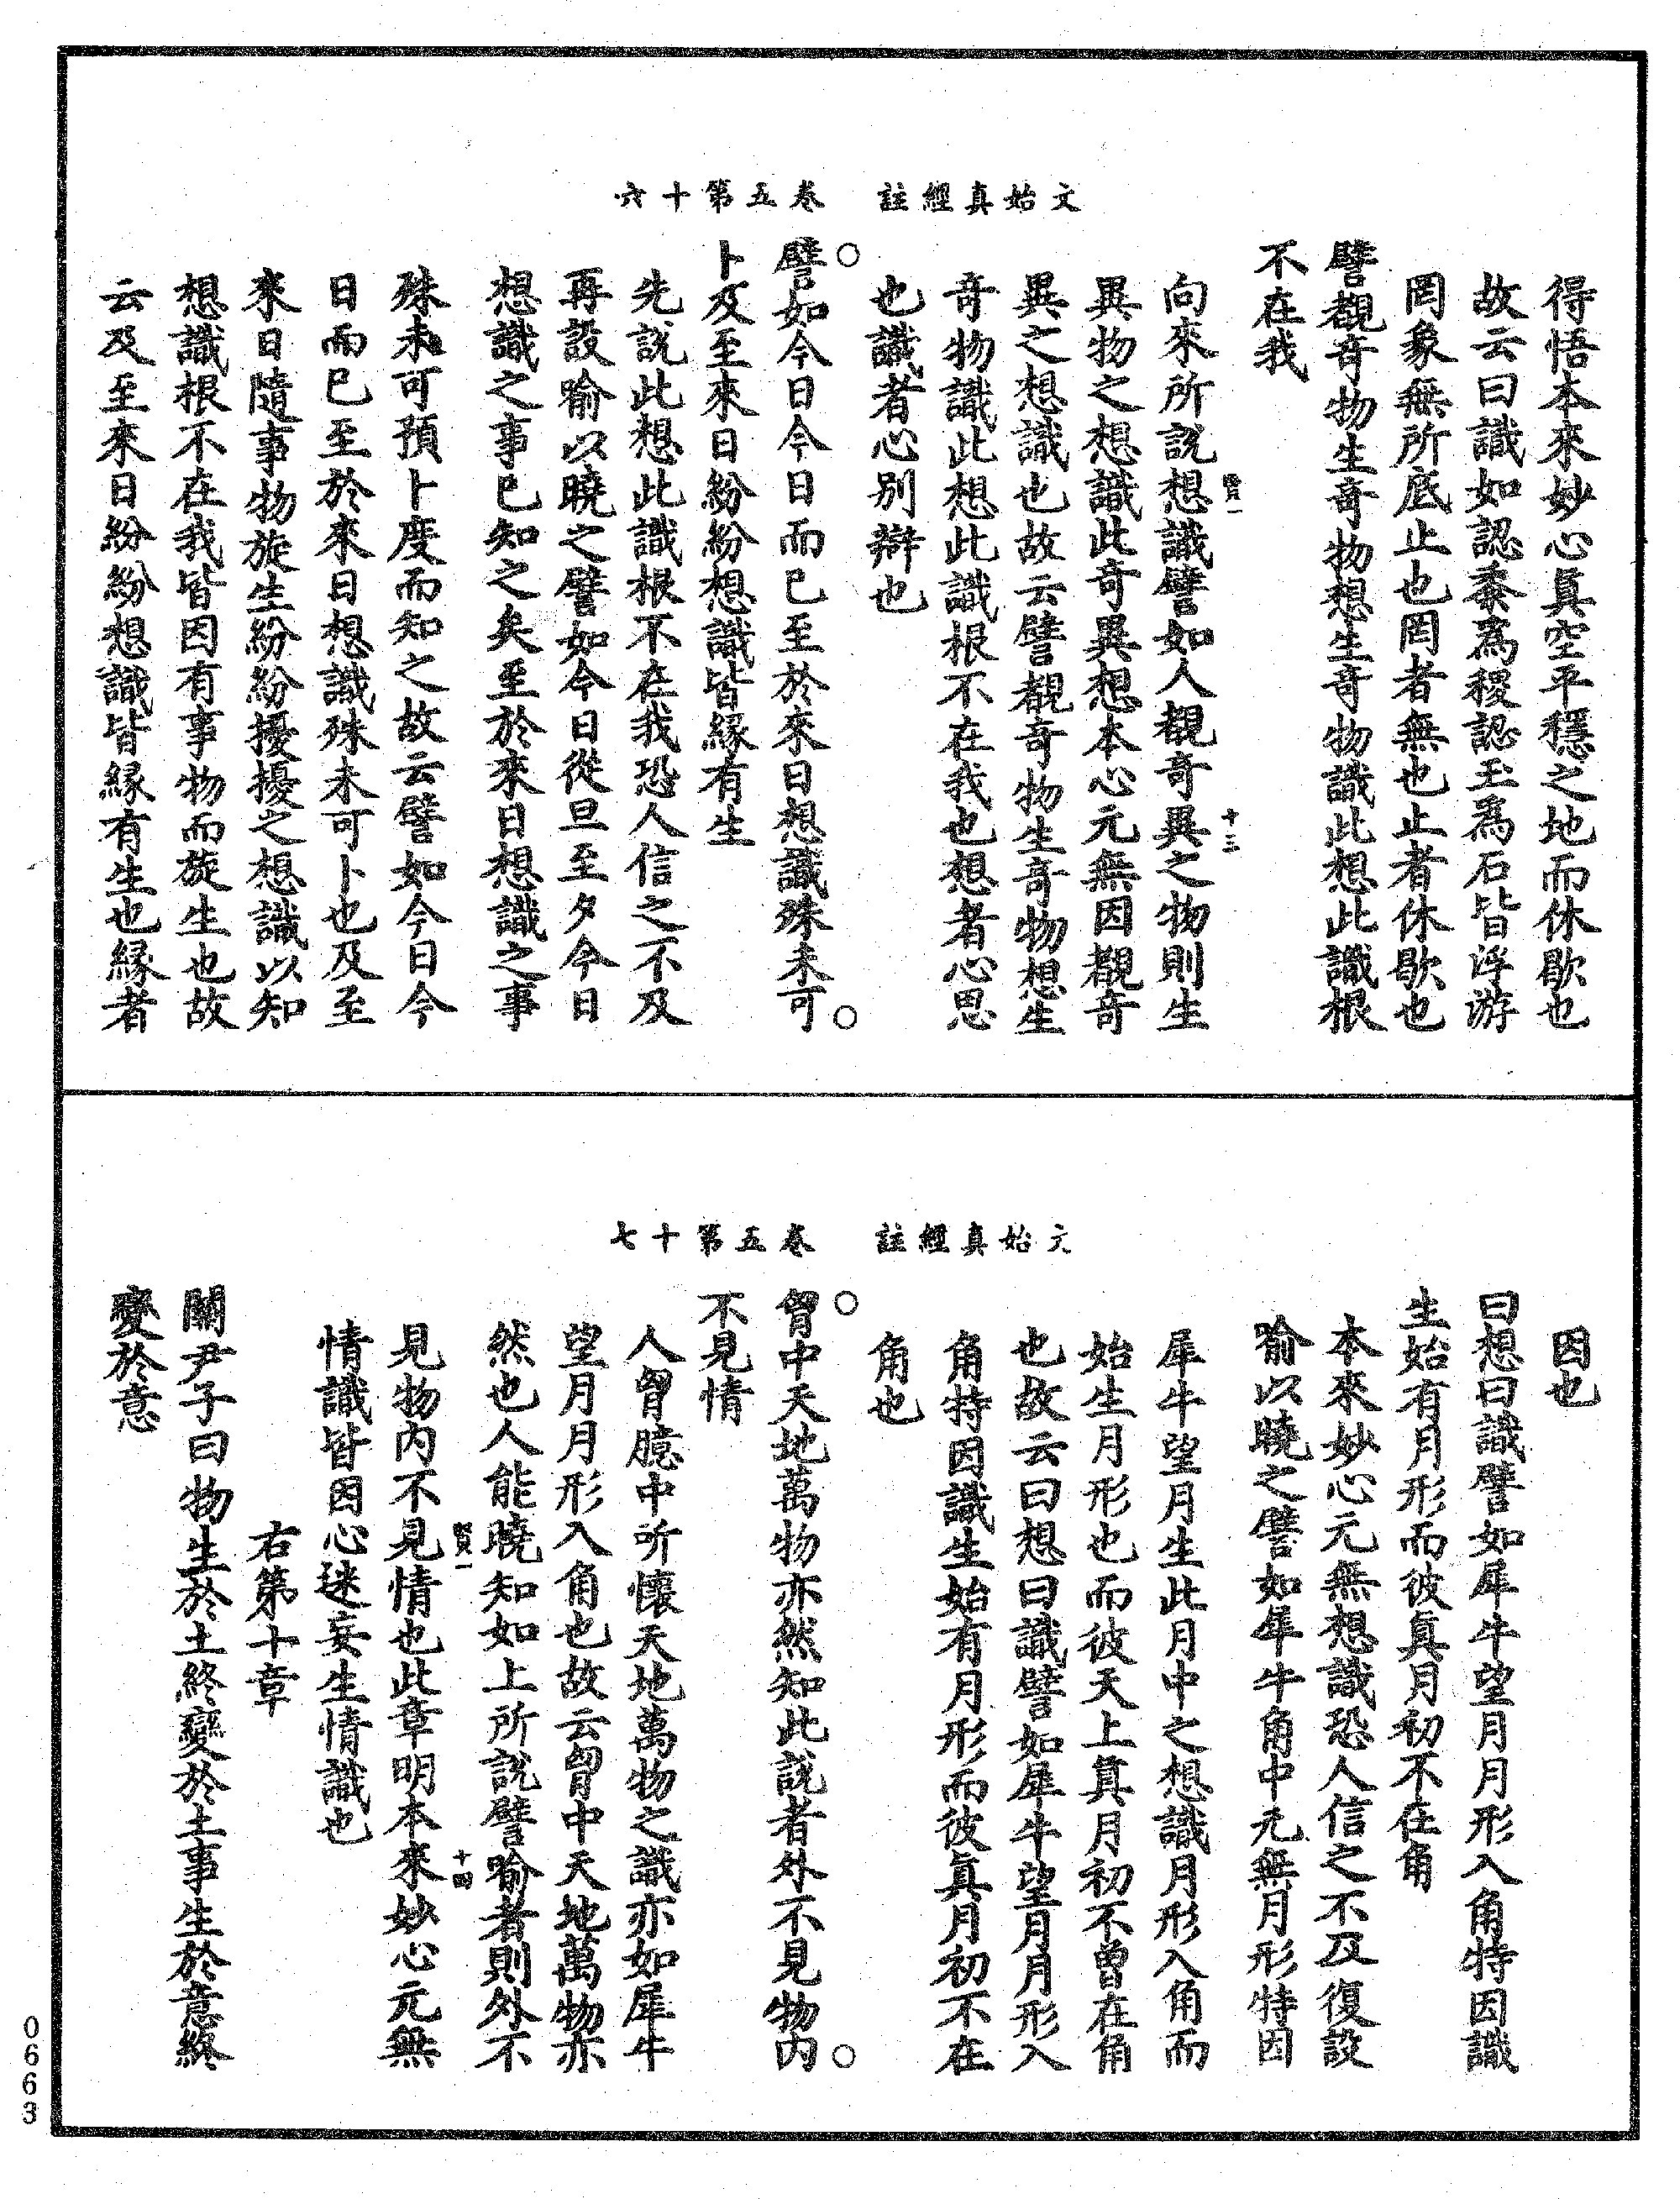 文始真經註　卷五第十六
得悟本來妙心真空平穩之地而休歇也
故云曰識如認黍為稷認玉為石皆浮游
罔象無所底止也罔者無也止者休歇也
譬覩奇物生奇物想生奇物識此想此識根
不在我
向來所說想識譬如人覩奇異之物則生
賢一　十三
異物之想識此奇異想本心元無因覩奇
異之想識也故云譬覩奇物生奇物想生
奇物識此想此識根不在我也想者心思
也識者心別辯也
譬如今日今日而已至於來日想識殊未可
卜及至來日紛紛想識皆緣有生
先說此想此識根不在我恐人信之不及
再設喻以曉之譬如今日從旦至夕今日
想識之事已知之矣至於來日想識之事
殊未可預卜度而知之故云譬如今日今
日而已至於來日想識殊未可卜也及至
來日隨事物旋生紛紛擾擾之想識以知
想識根不在我皆因有事物而旋生也故
云及至來日紛紛想識皆緣有生也緣者
文始真經註　卷五第十七
因也
曰想曰識譬如犀牛望月月形入角特因識
生始有月形而彼真月初不在角
本來妙心元無想識恐人信之不及復設
喻以曉之譬如犀牛角中元無月形特因
犀牛望月生此月中之想識月形入角而
始生月形也而彼天上真月初不曾在角
也故云曰想曰識譬如犀牛望月月形入
角特因識生始有月形而彼真月初不在
角也
胷中天地萬物亦然知此說者外不見物內
不見情
人胷臆中所懷天地萬物之識亦如犀牛
望月月形入角也故云胷中天地萬物亦
然也人能曉知如上所說譬喻者則外不
賢一　十四
見物內不見情也此章明本來妙心元無
情識皆因心迷妄生情識也
右第十章
關尹子曰物生於土終變於土事生於意終
變於意
0663